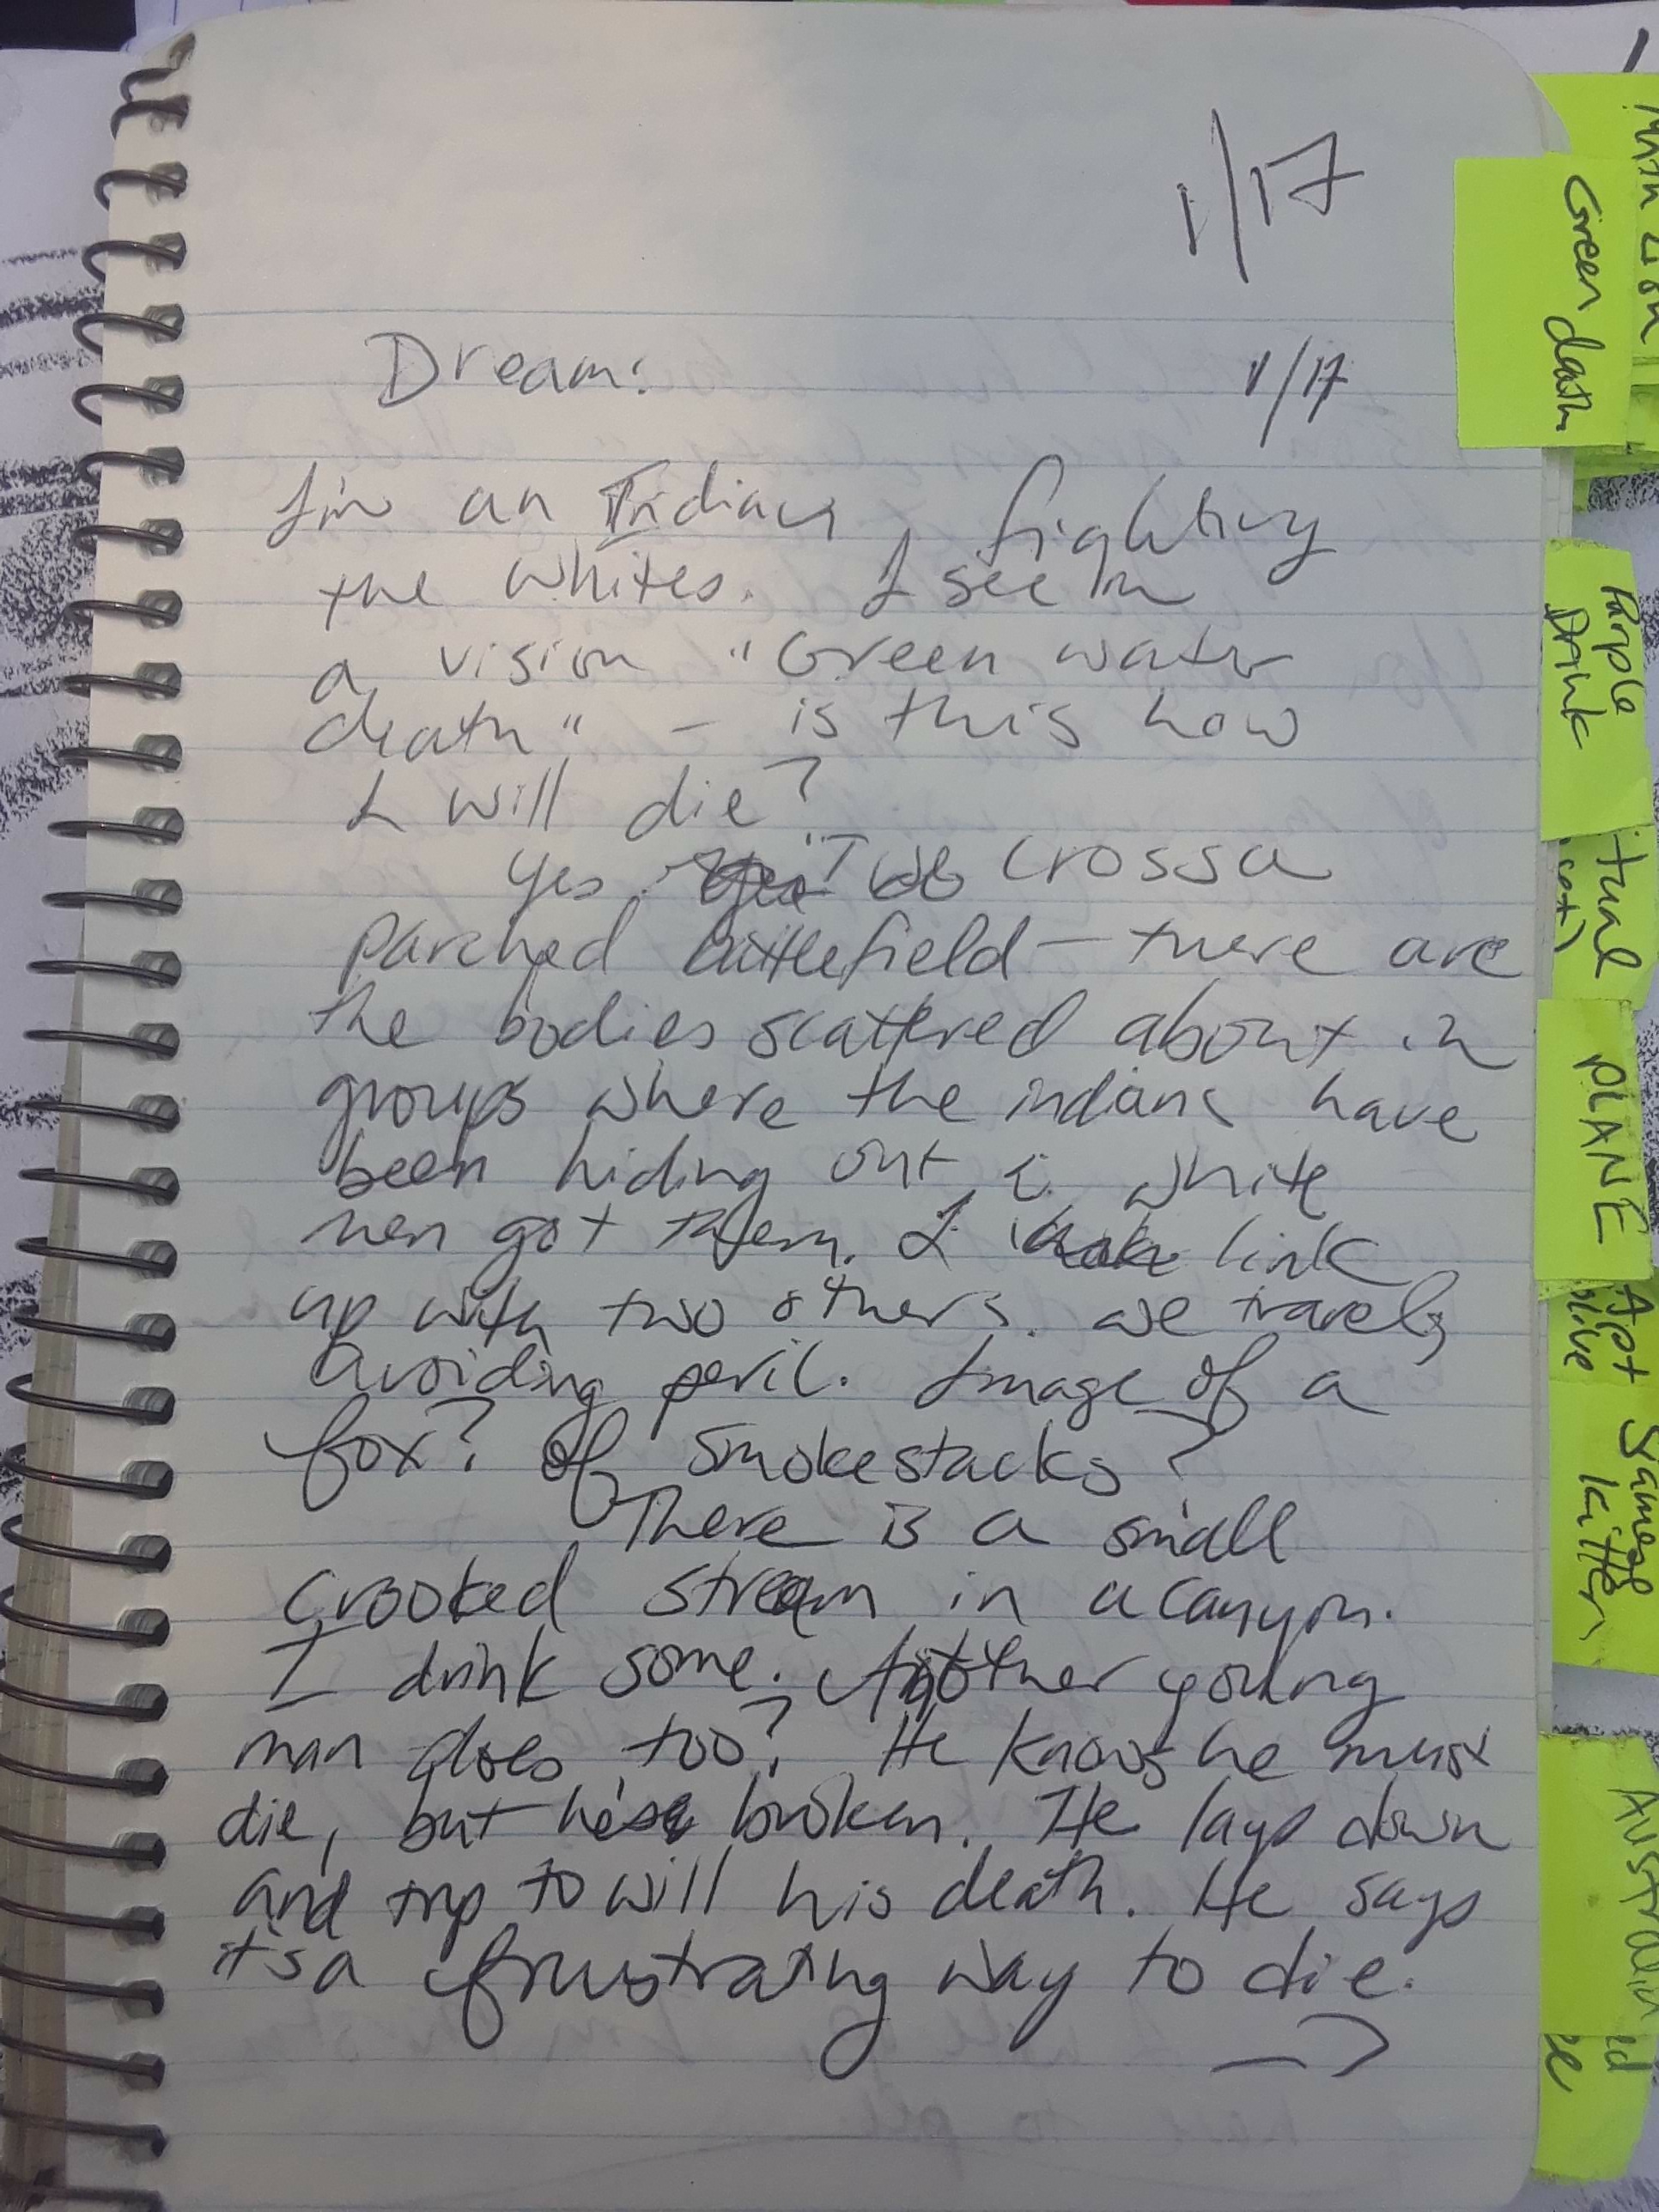 1/17
Dream:
1/17
I'm an Indian, fighting
the whites. I see in
a vision "Green water
death" - is this how
I will die?
Yes. We cross a
parched battlefield — there are
the bodies scattered about in
groups where the indians have
been hiding out & white
men got them. I link
up with two others. We travel,
avoiding peril. Image of a
fox? Of smokestacks?
There is a small
crooked stream in a canyon.
I drink some. Another young
man does too? He knows he must
die, but he's broken. He lays down
and trys to will his death. He says
it's a frustrating way to die.
→
Green death
Purple
Drink
PLANE
Apt
Siamese
kitten